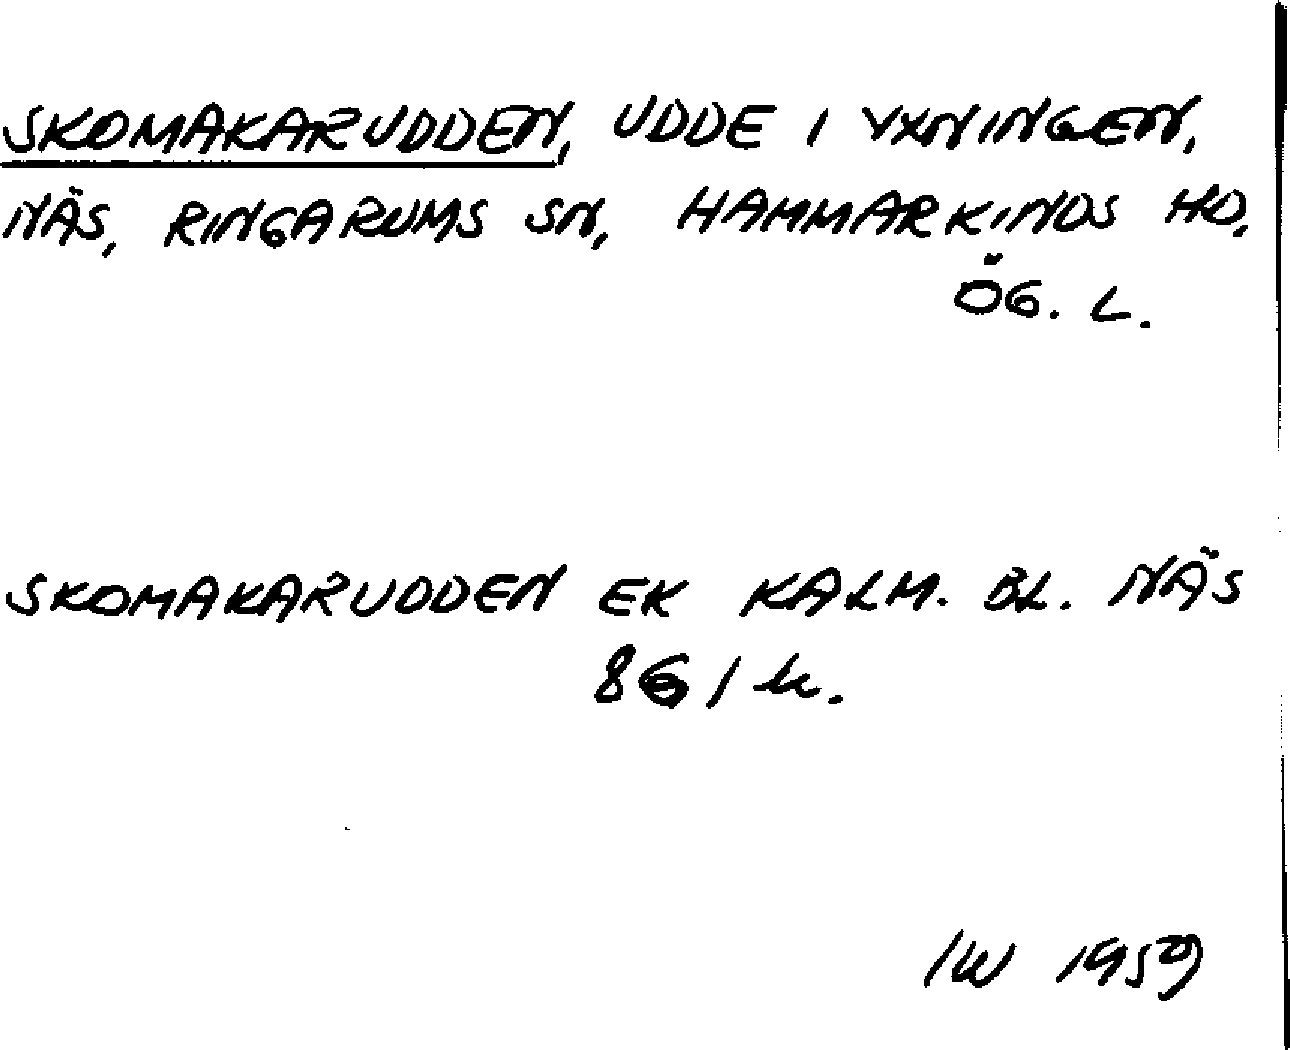 SKOMAKARUDDEN, UDDE I YXNINGEN,
NÄS, RINGARUMS SN, HAMMARKINDS HD,
ÖG. L.
SKOMAKARUDDEN EK KALM. BL. NÄS
861 k.
IW 1959